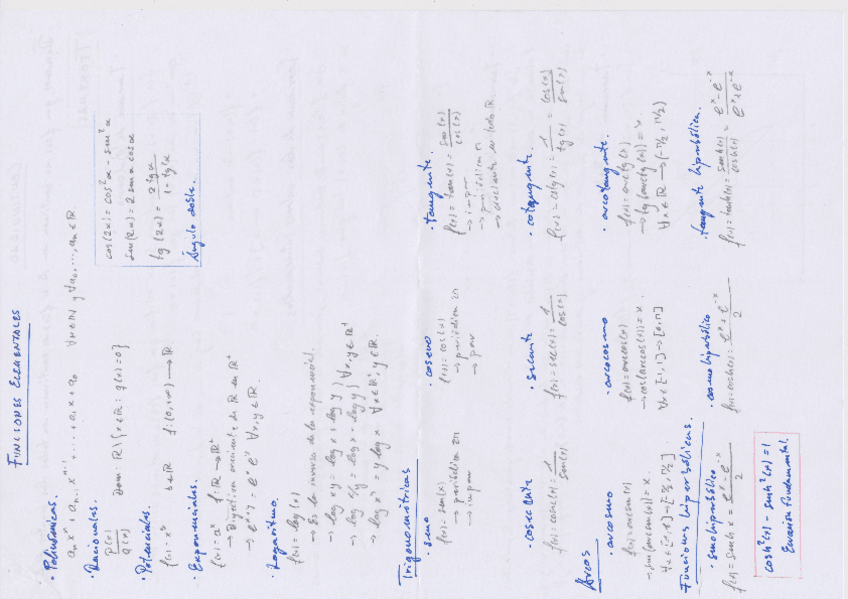 FUNCIONES ELEMENTALES
· Polinómicas.
aₙxⁿ + aₙ₋₁ xⁿ⁻¹ + ... + a₁x + a₀ ∀n∈ℕ y ∀a₀, ..., aₙ∈ℝ
· Racionales.
p(x)/q(x) Dom: ℝ\{x∈ℝ: q(x)=0}
· Potenciales.
f(x) = xᵇ b∈ℝ f:(0,+∞) → ℝ
cos(2α) = cos²α - sen²α
sen(2α) = 2 senα cosα
tg(2α) = 2tgα / 1-tg²α
Ángulo doble.
· Exponenciales.
f(x) = aˣ f: ℝ → ℝ⁺
→ Biyectiva creciente de ℝ en ℝ⁺
→ eˣ⁺ʸ = eˣ eʸ ∀x,y∈ℝ.
· Logaritmo.
f(x) = log(x)
→ Es la inversa de la exponencial.
→ log xy = log x + log y } ∀x,y∈ℝ⁺
→ log x/y = log x - log y } ∀x,y∈ℝ⁺
→ log xʸ = y log x ∀x∈ℝ⁺, y∈ℝ.
Trigonométricas
· seno
f(x) = sen(x)
→ periódica 2π
→ impar
· coseno
f(x) = cos(x)
→ periódica 2π
→ par
· tangente.
f(x) = tan(x) = sen(x)/cos(x)
→ impar
→ periódica π
→ creciente en todo ℝ
· cosecante
f(x) = cosec(x) = 1/sen(x)
· secante
f(x) = sec(x) = 1/cos(x)
· cotangente.
f(x) = cotg(x) = 1/tg(x) = cos(x)/sen(x)
Arcos
· arcoseno
f(x) = arcsen(x)
→ sen(arcsen(x)) = x.
∀x∈[-1,1] → [-π/2, π/2]
· arcocoseno
f(x) = arccos(x)
→ cos(arccos(x)) = x.
∀x∈[-1,1] → [0,π]
· arcotangente.
f(x) = arctg(x)
→ tg(arctg(x)) = x
∀x∈ℝ → (-π/2, π/2)
Funciones hiperbólicas.
· seno hiperbólico
f(x) = senh x = eˣ - e⁻ˣ / 2
· coseno hiperbólico
f(x) = cosh(x) = eˣ + e⁻ˣ / 2
· tangente hiperbólica.
f(x) = tanh(x) = senh(x)/cosh(x) = eˣ - e⁻ˣ / eˣ + e⁻ˣ
cosh²(x) - senh²(x) = 1
Ecuación fundamental.